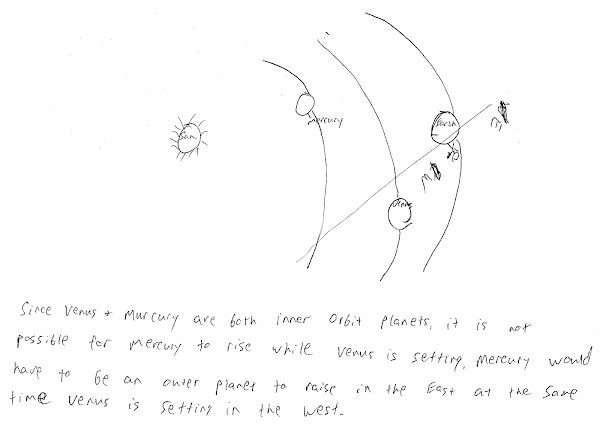 Sun
Mercury
Earth
Venus
Since Venus + Murcury are both inner orbit planets, it is not
possible for Mercury to rise while Venus is setting, Mercury would
have to be an outer planet to raise in the East at the same
time Venus is setting in the West.